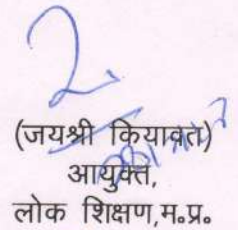 (जयश्री कियावत)
आयुक्त,
लोक शिक्षण,म०प्र०